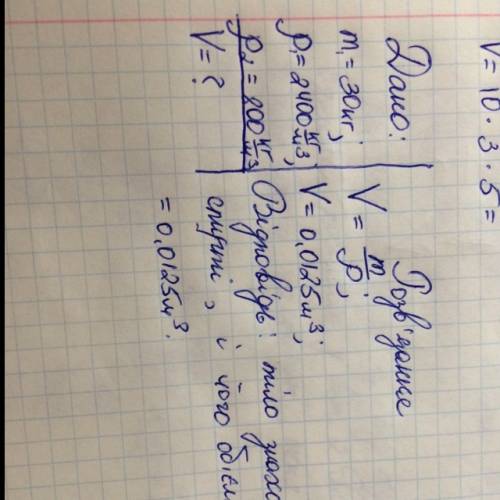 V = 10 · 3 · 5 =
Дано:
m₁ = 30кг;
ρ₁ = 2400 кг/м3;
ρ₂ = 800 кг/м3
V = ?
Розв'язання
V = m/ρ;
V = 0,0125м³;
Відповідь: тіло знахо
спирті, і його об'єм
= 0,0125м³.